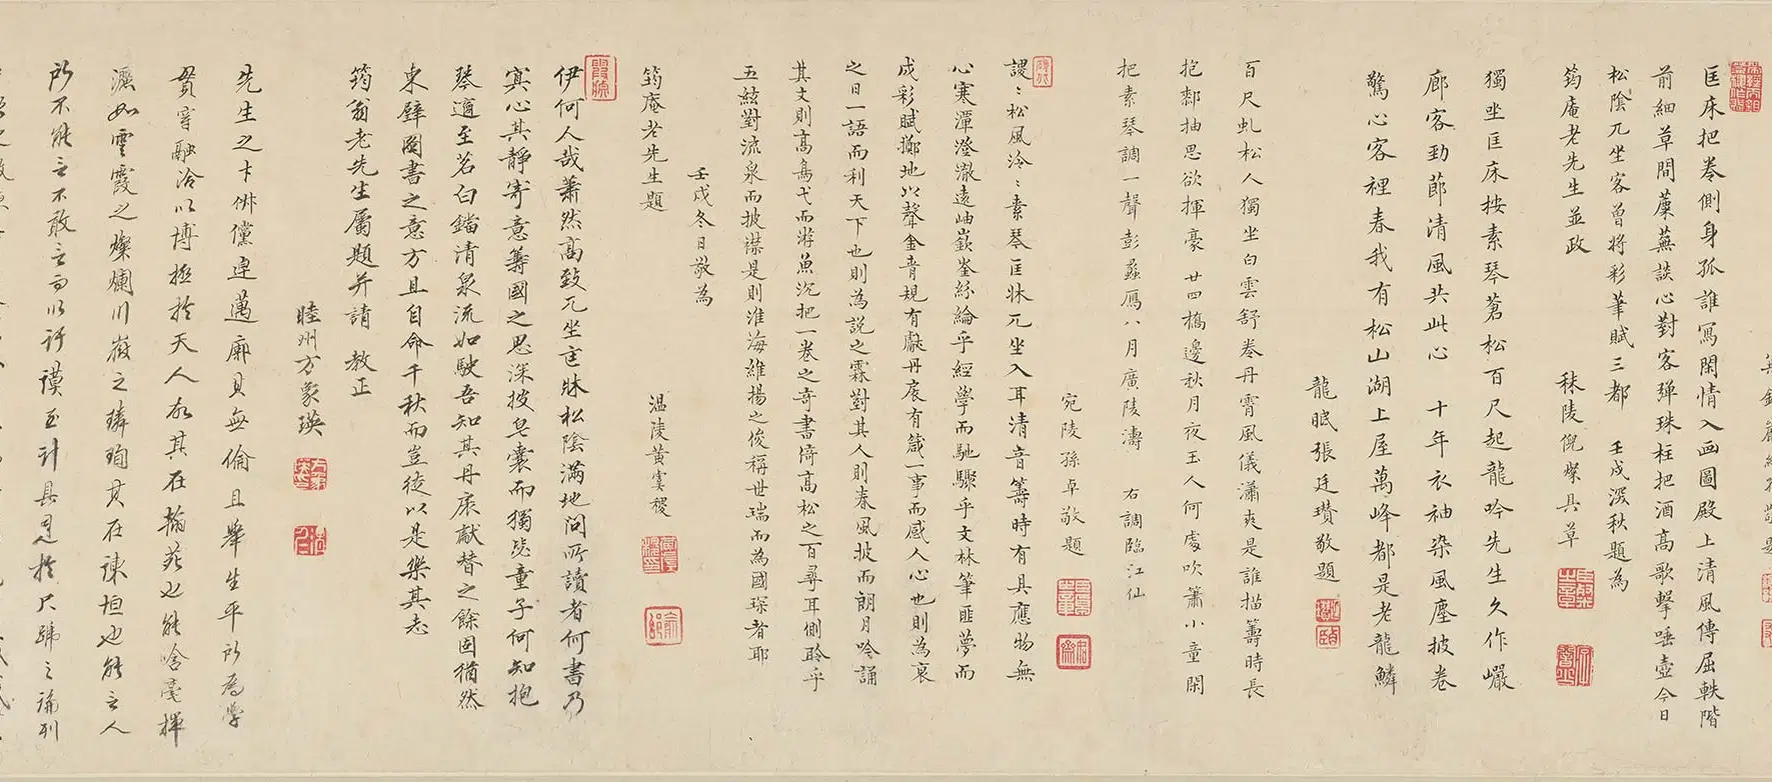 匡床把卷側身孤誰寫閑情入画圖殿上清風傳屈軼階
前細草間蘼蕪談心對客彈珠柱把酒高歌擊唾壺今日
松陰兀坐客曾將彩筆賦三都 壬戌深秋題為
筠庵老先生並政
秣陵倪燦具草
獨坐匡床按素琴蒼松百尺起龍吟先生久作巖
廊客勁節清風共此心 十年衣袖染風塵披卷
驚心客裡春我有松山湖上屋萬峰都是老龍鱗
龍眠張廷瓚敬題
百尺虬松人獨坐白雲舒卷丹霄風儀瀟爽是誰描籌時長
抱鄴抽思欲揮豪 廿四橋邊秋月夜玉人何處吹簫小童閑
把素琴調一聲彭蠡鴈八月廣陵濤 右調臨江仙
宛陵孫卓敬題
謖〻松風泠〻素琴匡牀兀坐入耳清音籌時有具應物無
心寒潭澄澈遠岫嶔崟紛綸乎經學而馳驟乎文林筆匪夢而
成彩賦擲地以聲金青規有獻丹扆有箴一事而感人心也則為哀
之日一語而利天下也則為說之霖對其人則春風披而朗月吟誦
其文則高鳥弋而游魚沉把一卷之奇書倚高松之百尋耳側聆乎
五絃對流泉而披襟是則淮海維揚之俊稱世瑞而為國琛者耶
壬戌冬日敬為
筠庵老先生題
温陵黃虞稷
伊何人哉蕭然高致兀坐匡牀松陰滿地問所讀者何書乃
寞心其靜寄意籌國之思深披皂囊而獨毖童子何知抱
琴適至茗臼鐺清泉流如駛吾知其丹扆獻替之餘固猶然
東壁圖書之意方且自命千秋而豈徒以是樂其志
筠翁老先生屬題并請 教正
睦州方象瑛
先生之才俳儻卓邁廓具無倫且畢生平所為學
貫穿融冶以博極於天人故其在翰苑也能含毫揮
灑如雲霞之燦爛川嶽之璘珣其在諫垣也能言人
所不能言不敢言而以訏謨至計具見於尺牘之論列